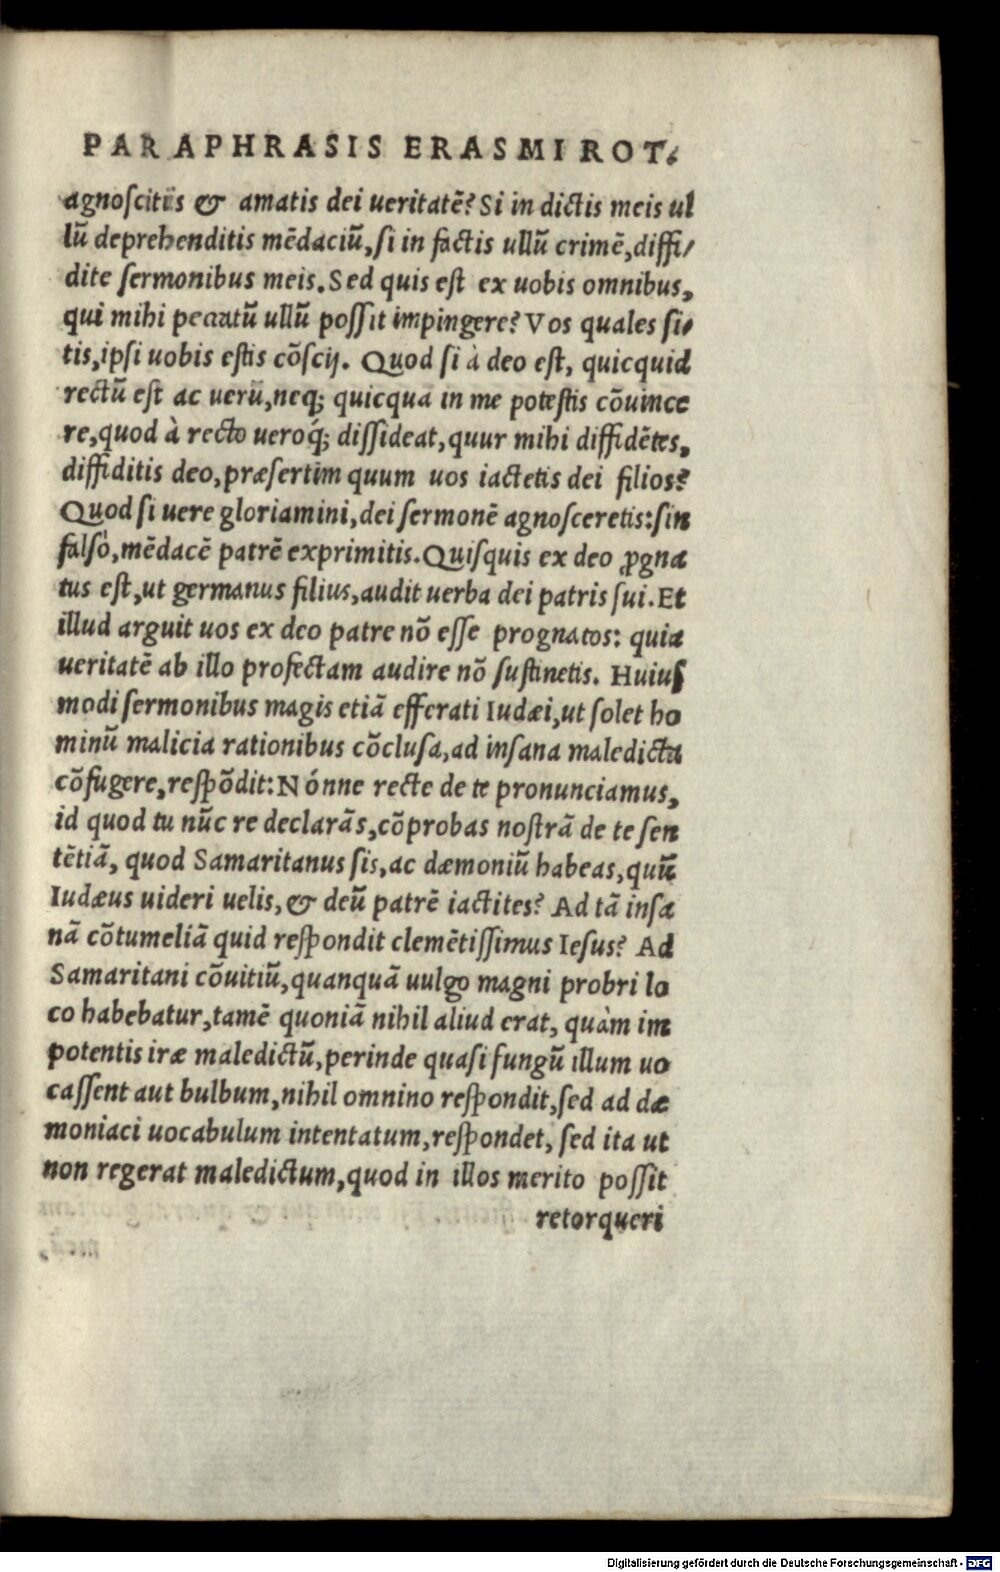 PARAPHRASIS ERASMI ROT.
agnoscitis & amatis dei ueritatē? Si in dictis meis ul
lū deprehenditis mēdaciū, si in factis ullū crimē, diffi/
dite sermonibus meis. Sed quis est ex uobis omnibus,
qui mihi peccatū ullū possit impingere? Vos quales si/
tis, ipsi uobis estis cōscij. Quod si à deo est, quicquid
rectū est ac uerū, neq; quicquā in me potestis cōuince
re, quod à recto ueroq́; dissideat, quur mihi diffidētes,
diffiditis deo, præsertim quum uos iactetis dei filios?
Quod si uere gloriamini, dei sermonē agnosceretis: sin
falsò, mēdacē patrē exprimitis. Quisquis ex deo ꝓgna
tus est, ut germanus filius, audit uerba dei patris sui. Et
illud arguit uos ex deo patre nō esse prognatos: quia
ueritatē ab illo profectam audire nō sustinetis. Huius
modi sermonibus magis etiā efferati Iudæi, ut solet ho
minū malicia rationibus cōclusa, ad insana maledicta
cōfugere, respōdit: Nónne recte de te pronunciamus,
id quod tu nūc re declarās, cōprobas nostrā de te sen
tētiā, quod Samaritanus sis, ac dæmoniū habeas, quū
Iudæus uideri uelis, & deū patrē iactites? Ad tā insa
nā cōtumeliā quid respondit clemētissimus Iesus? Ad
Samaritani cōuitiū, quanquā uulgo magni probri lo
co habebatur, tamē quoniā nihil aliud erat, quàm im
potentis iræ maledictū, perinde quasi fungū illum uo
cassent aut bulbum, nihil omnino respondit, sed ad dæ
moniaci uocabulum intentatum, respondet, sed ita ut
non regerat maledictum, quod in illos merito possit
retorqueri
Digitalisierung gefördert durch die Deutsche Forschungsgemeinschaft - DFG